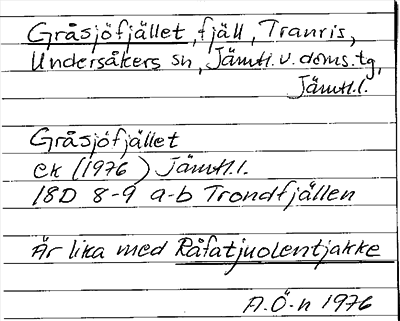 Gråsjöfjället, fjäll, Tranris,
Undersåkers sn, Jämtl. v. doms. tg,
Jämtl. l.
Gråsjöfjället
ek (1976) Jämtl. l.
18D 8-9 a-b Trondfjällen
Är lika med Råfatjuolentjakke
A.Ö-n 1976